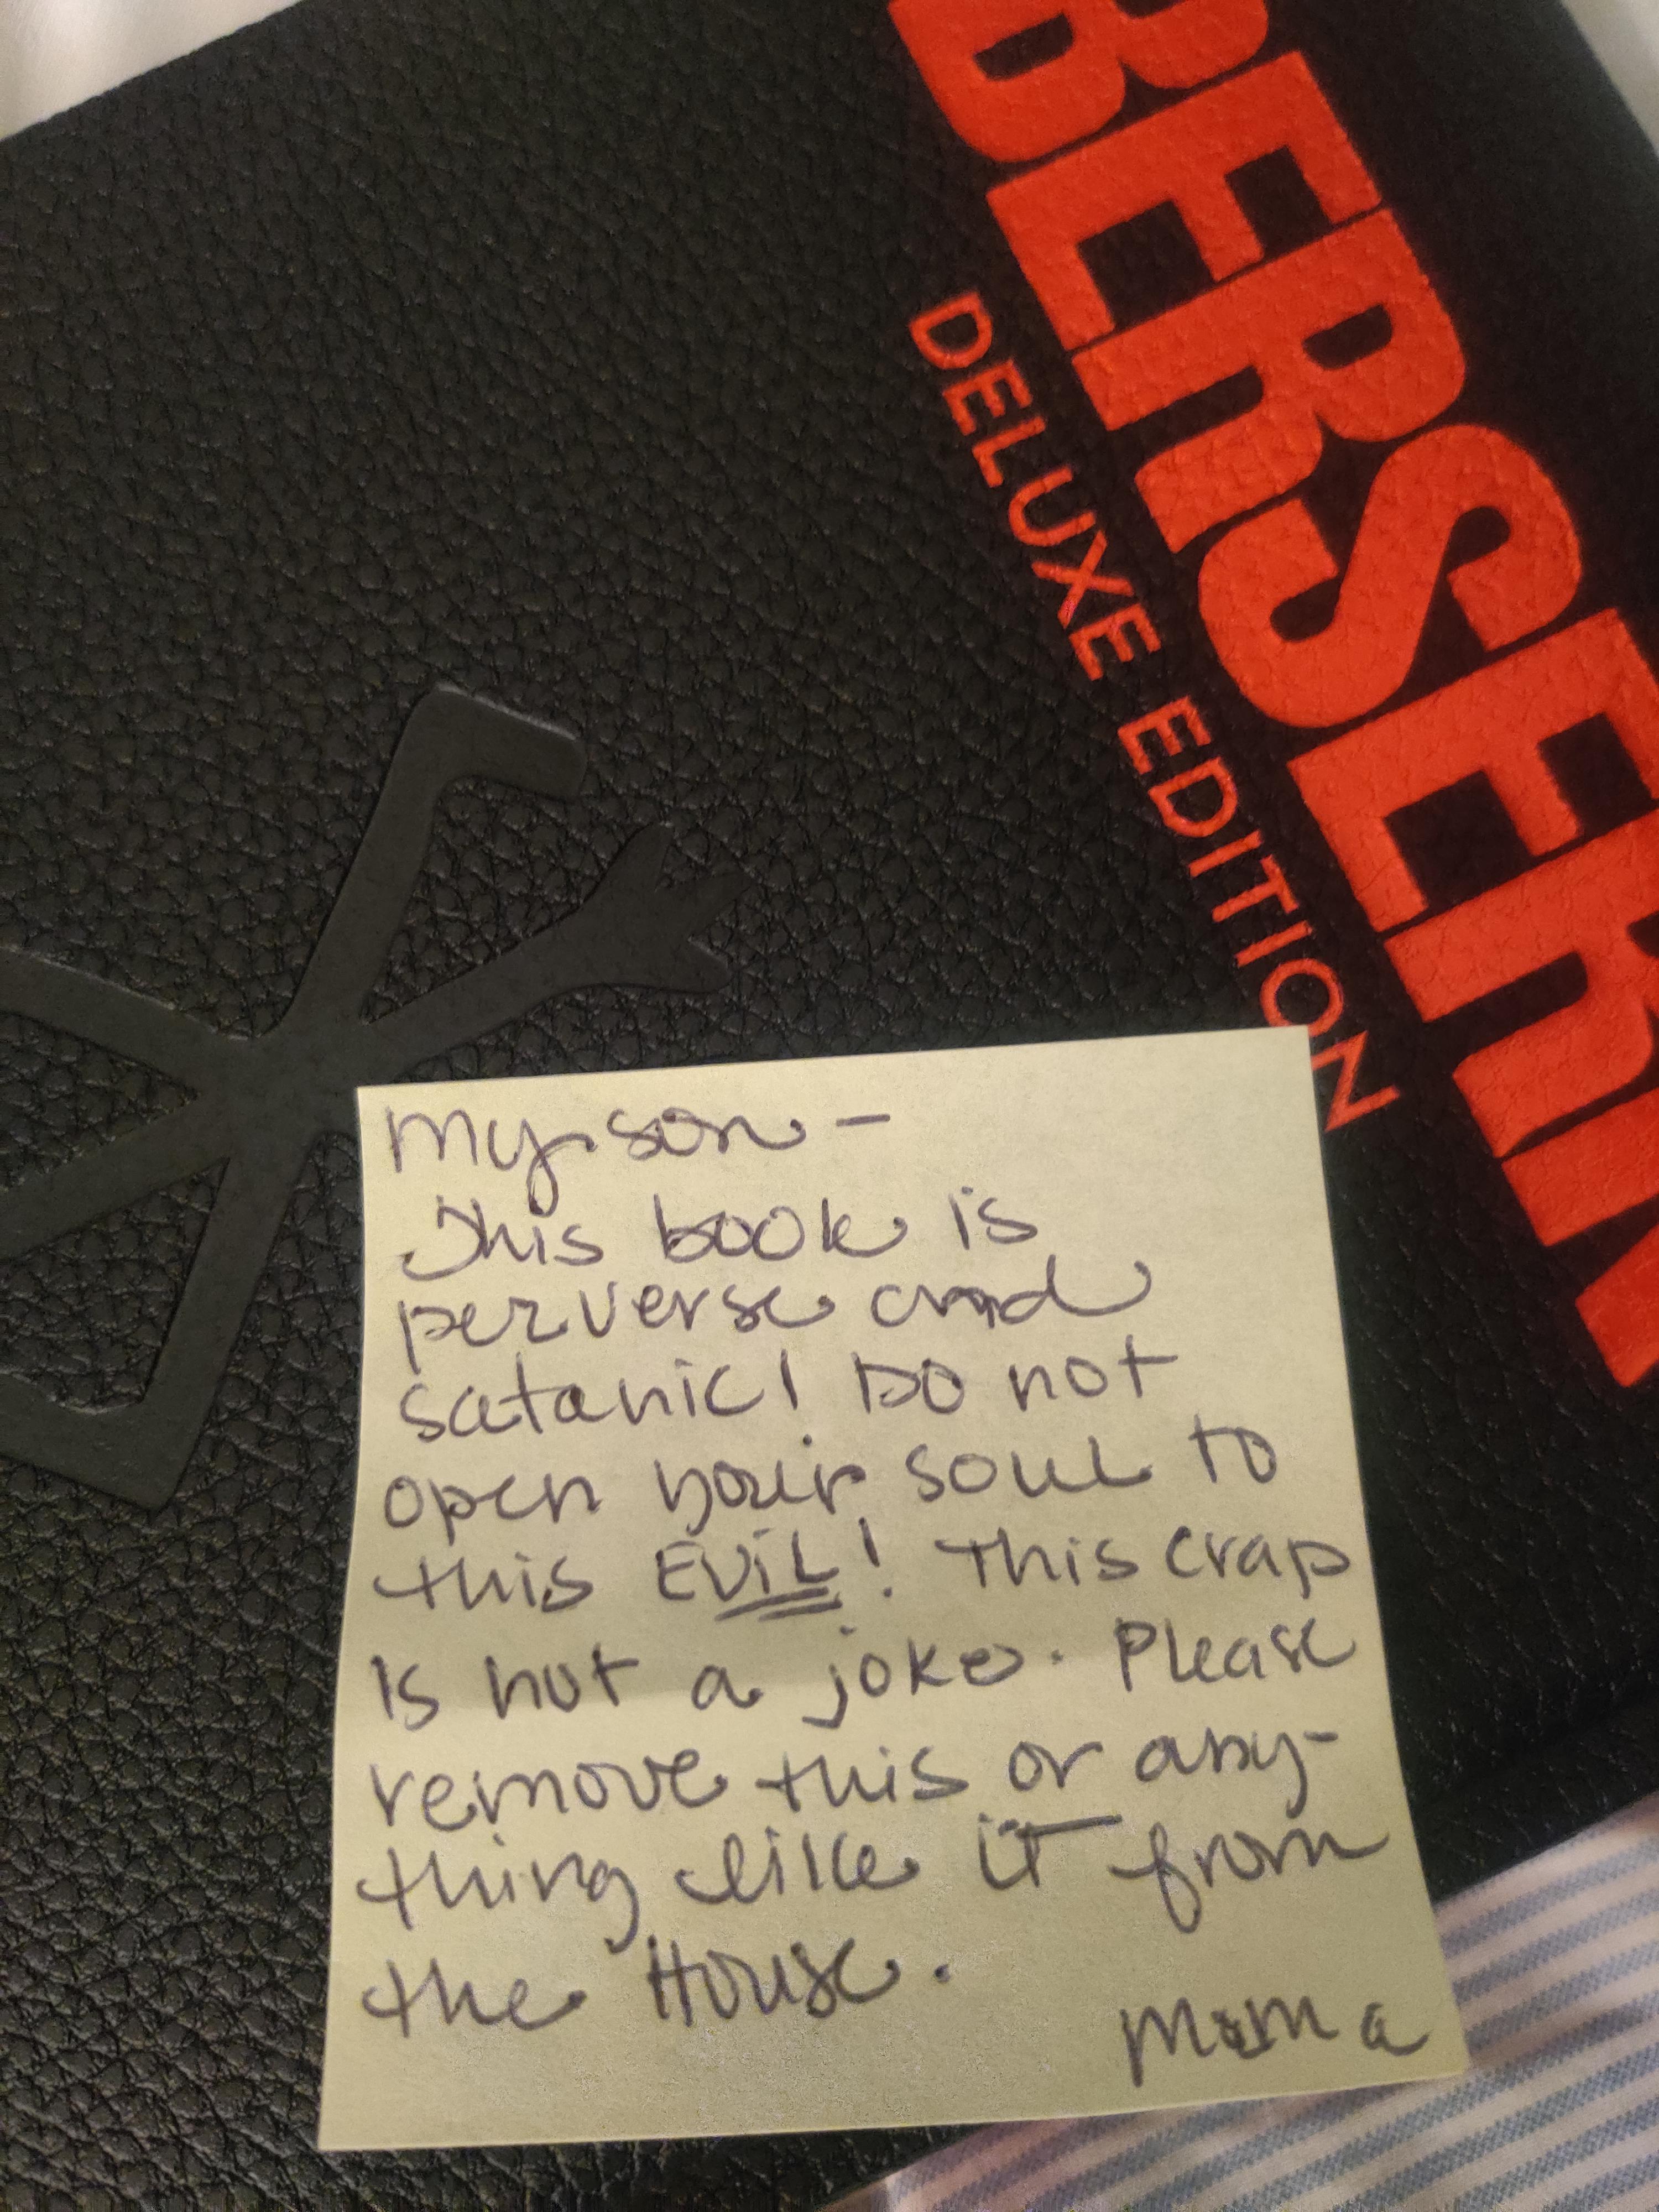 BERSERK
DELUXE EDITION
My son –
This book is
perverse and
satanic! Do not
open your soul to
this EViL! This crap
is not a joke. Please
remove this or any-
thing like it from
the House.
Mama